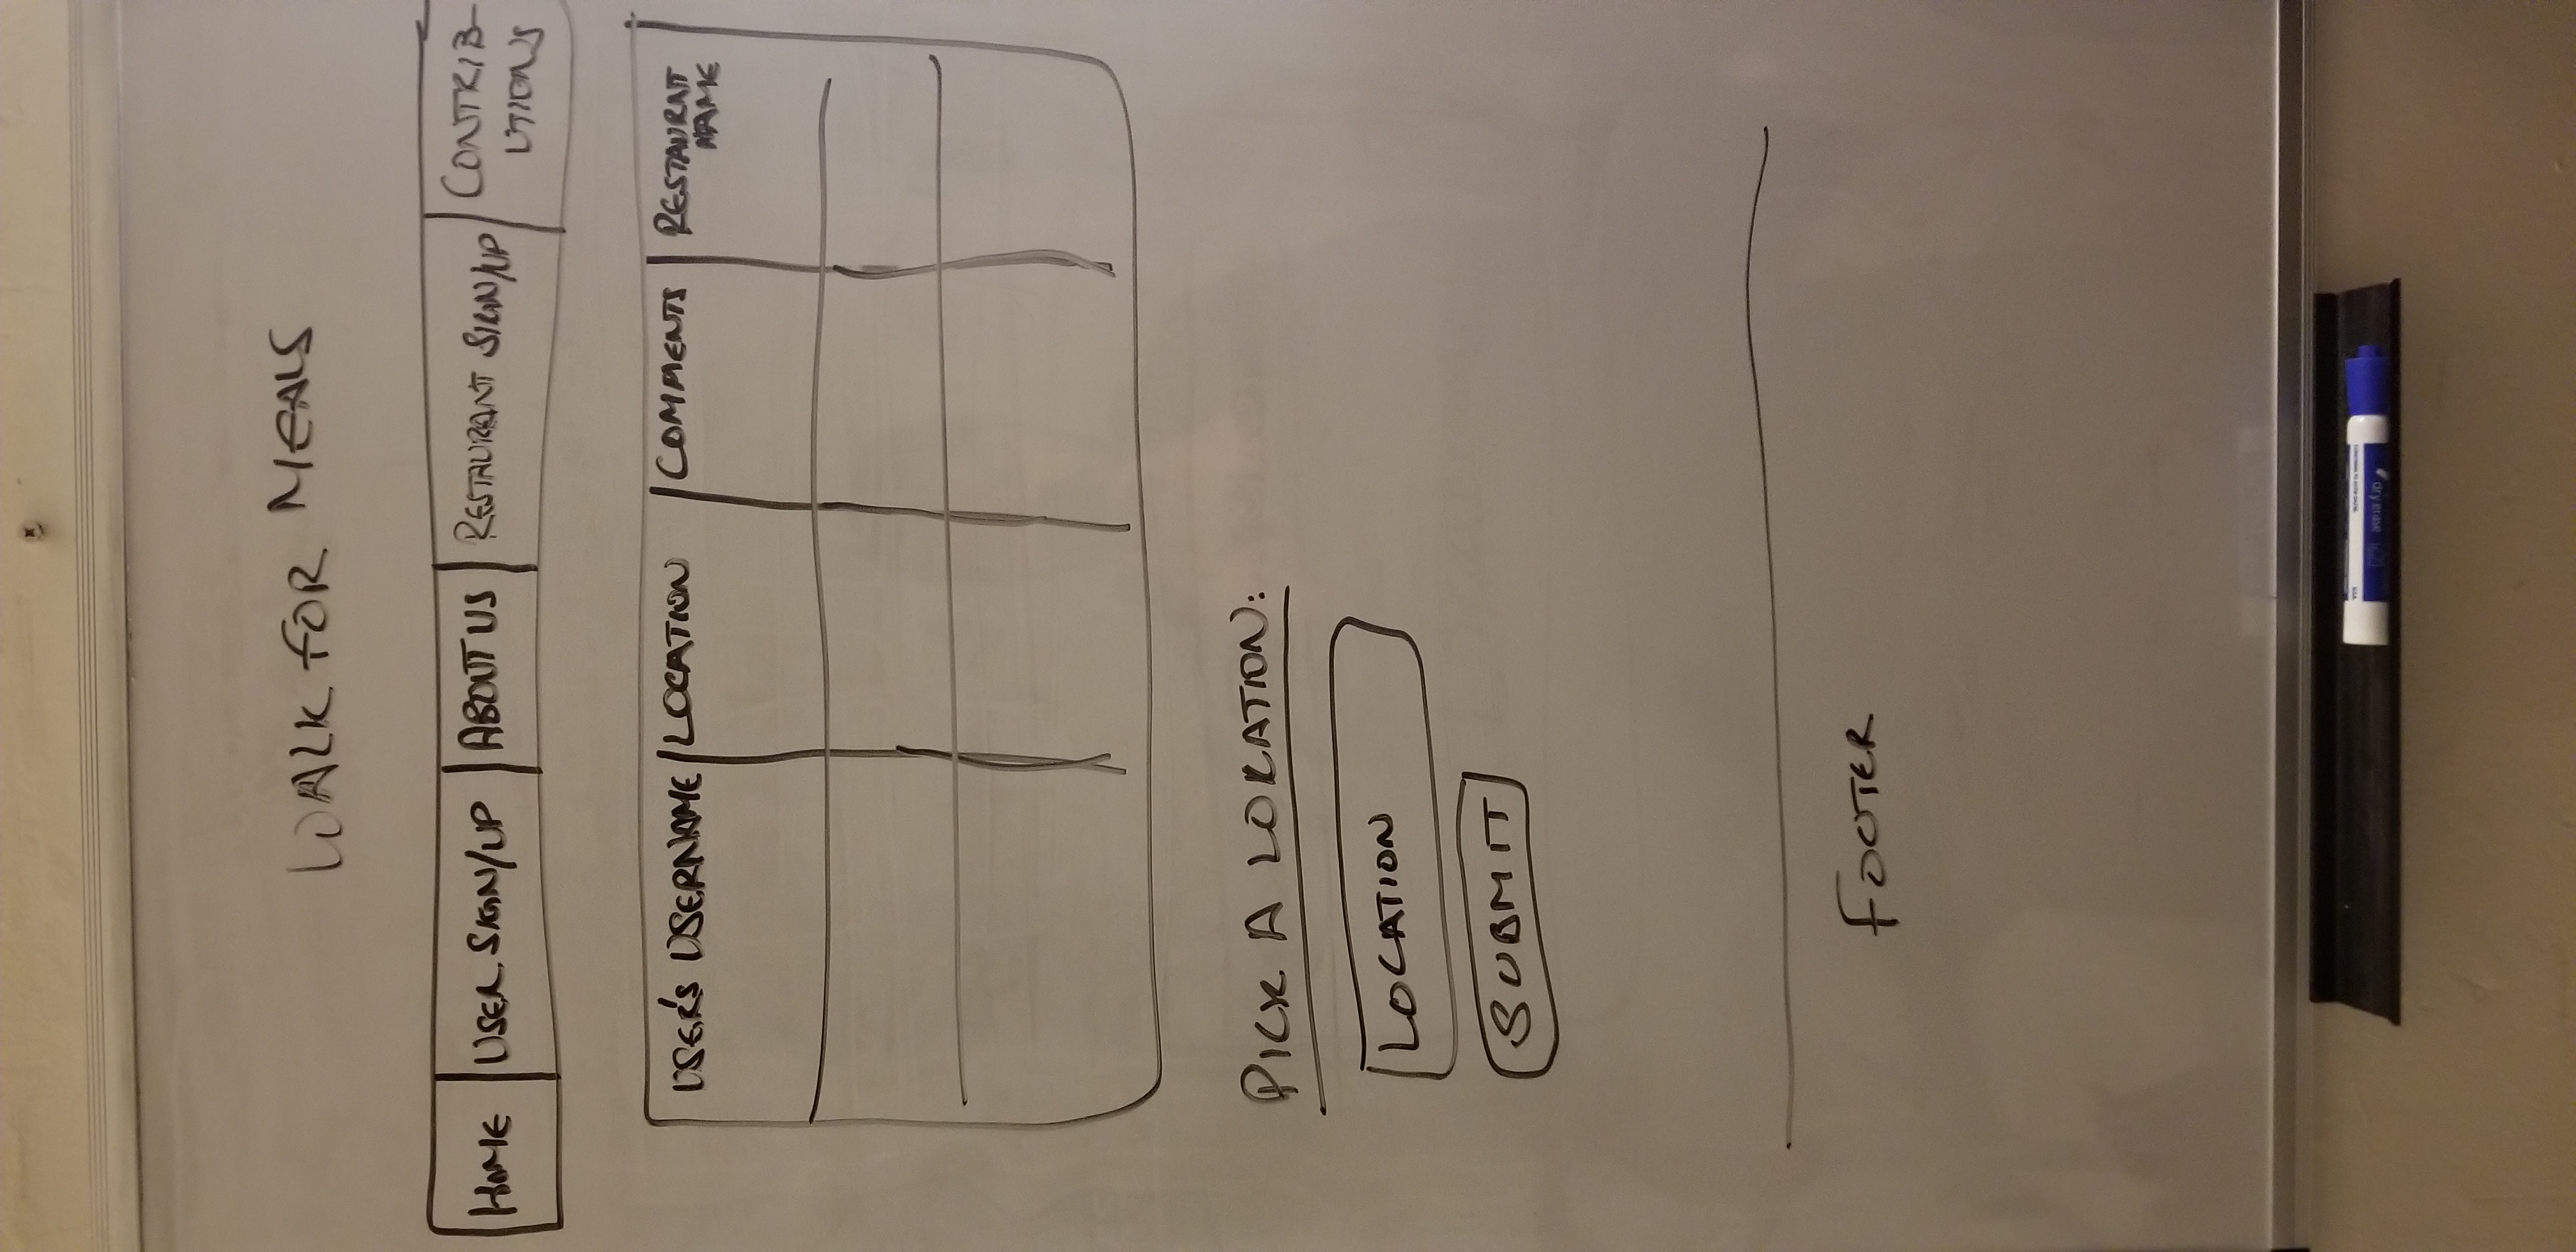 WALK FOR MEALS
HOME USER SIGN/UP ABOUT US RESTAURANT SIGN/UP CONTRIB-
UTIONS
USER'S USERNAME LOCATION COMMENTS RESTAURNT
NAME
PICK A LOCATION:
LOCATION
SUBMIT
FOOTER
dry erase
USA